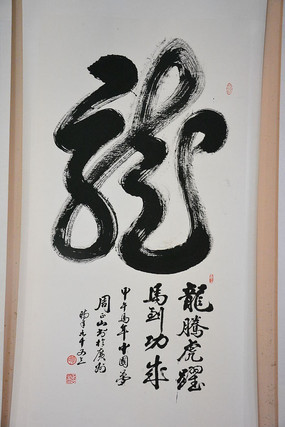 龍
龍騰虎躍
馬到功成
甲午馬年中國夢
周正山書於廣州
時年九十又三